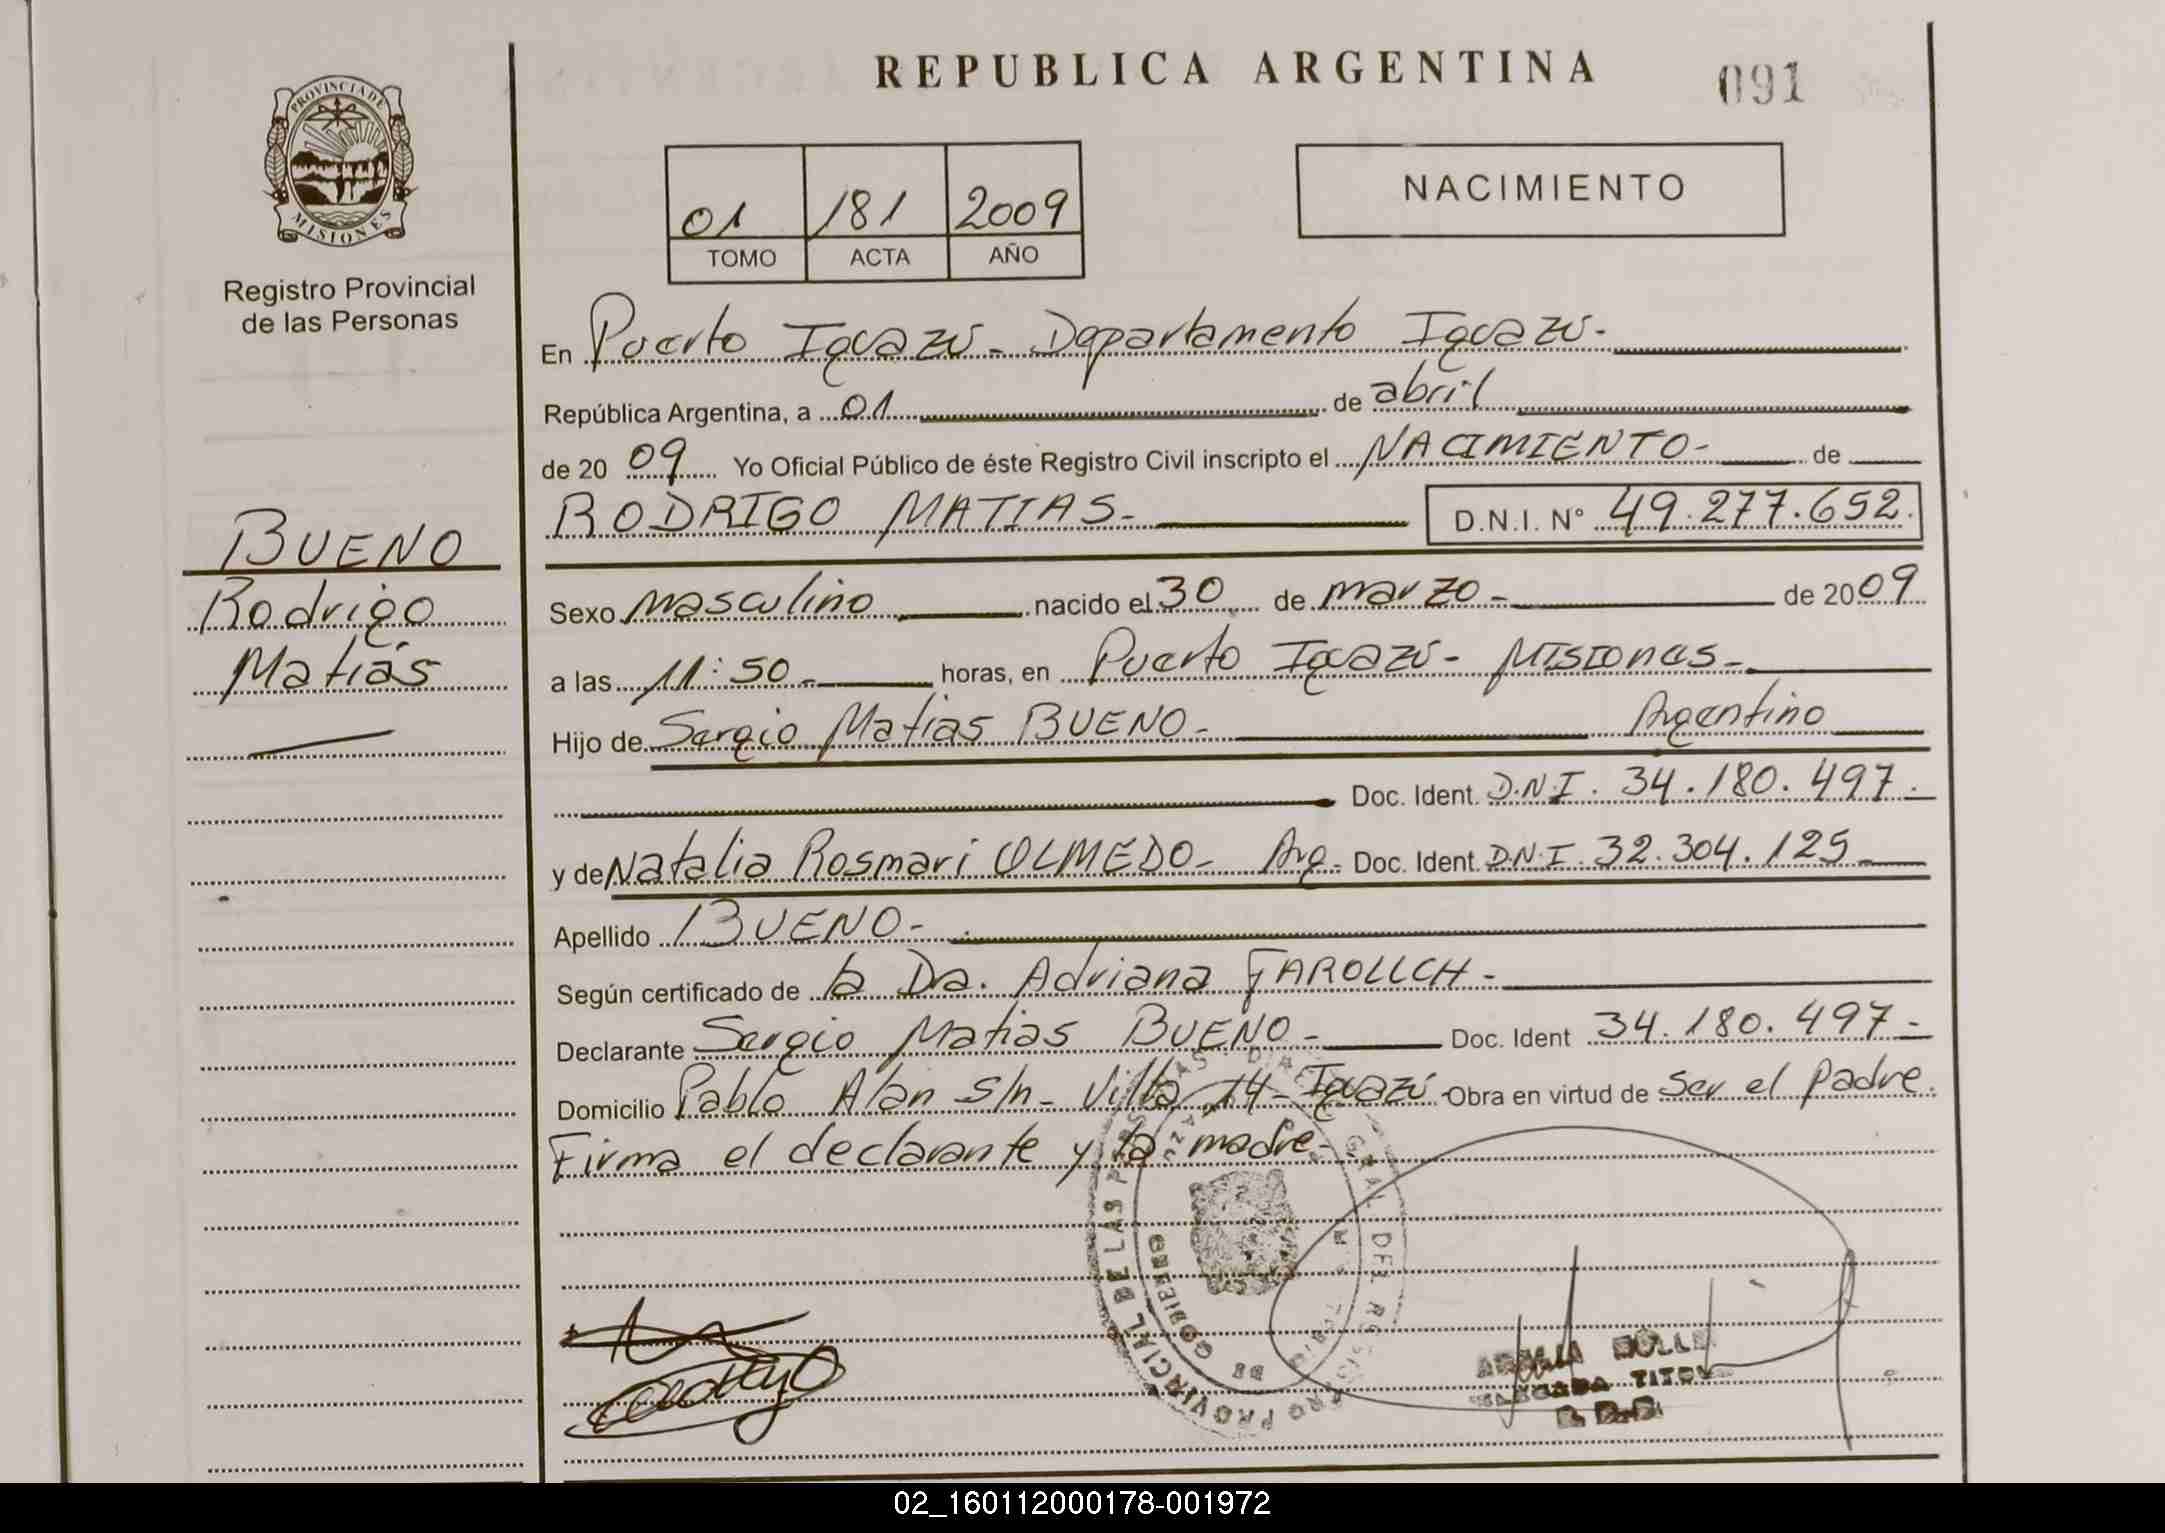 REPUBLICA ARGENTINA
091
PROVINCIA DE MISIONES
Registro Provincial
de las Personas
01 181 2009
TOMO ACTA AÑO
NACIMIENTO
En Puerto Iguazú - Departamento Iguazú -
República Argentina, a 01 de abril
de 20 09 Yo Oficial Público de éste Registro Civil inscripto el NACIMIENTO - de
RODRIGO MATIAS - D.N.I. N° 49.277.652.
BUENO
Rodrigo
Matias
Sexo masculino nacido el 30 de marzo - de 2009
a las 11:50 - horas, en Puerto Iguazú - Misiones -
Hijo de Sergio Matias BUENO - Argentino
Doc. Ident. D.N.I. 34.180.497.-
y de Natalia Rosmari OLMEDO - Arg - Doc. Ident. D.N.I. 32.304.125 -
Apellido BUENO -
Según certificado de la Dra. Adriana
Declarante Sergio Matias BUENO - Doc. Ident 34.180.497 -
Domicilio Pablo Alan S/n - Villa 14 - Iguazú - Obra en virtud de Ser el Padre.
Firma el declarante y la madre -
PROVINCIAL DE LAS
GRAL DEL
DE GOBIERNO
TITU
02_160112000178-001972